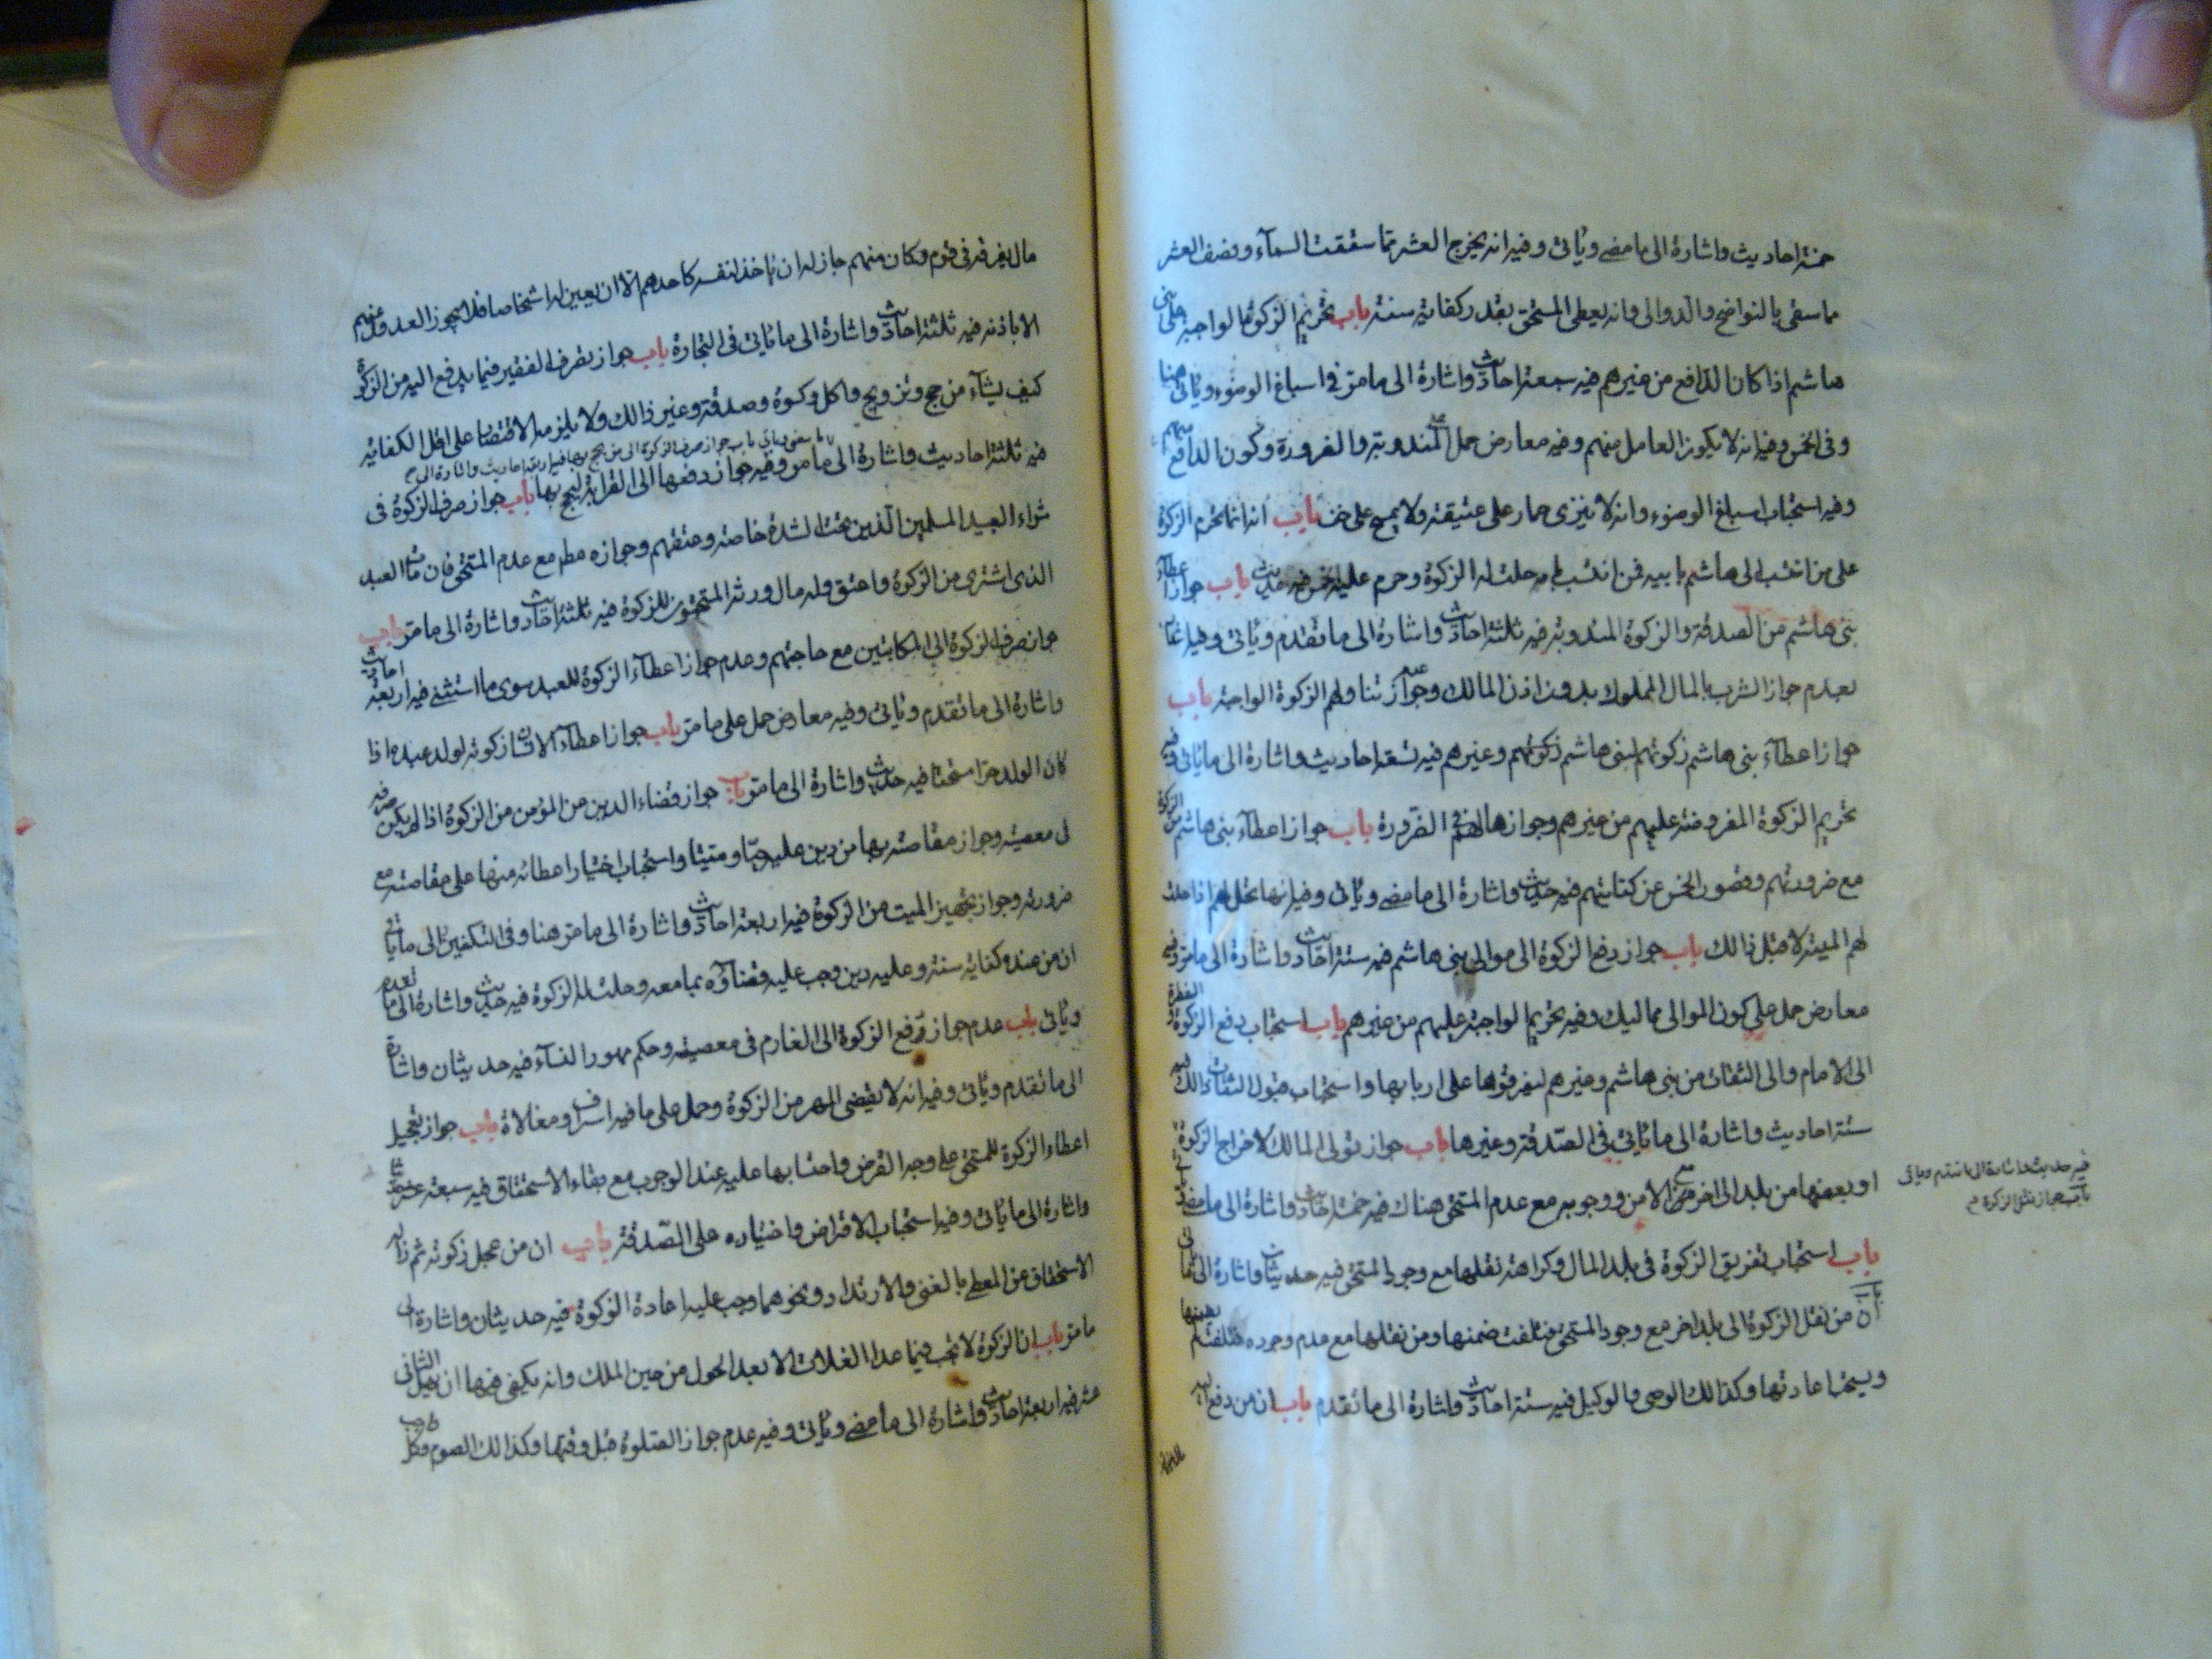 خمسة احاديث واشارة الى ما مضى وياتى وفيه انه يخرج العشر مما سقت السمآء ونصف العشر
مما سقى بالنواضح والدوالى وانه يعطى المستحق بقدر كفايته سنته باب تحريم الزكوة الواجبة على بنى
هاشم اذا كان الدافع من غيرهم فيه سبعة احاديث واشارة الى ما مر فى اسباغ الوضوء وياتى هنا
وفى الخمس وفيه انه لا يكون العامل منهم وفيه معارض حمل على المندوبة والضرورة وكون الدافع منهم
وفيه استحباب اسباغ الوضوء وانه لا ينزى حمار على عتيقة ولا يمسح على خف باب انه انما تحرم الزكوة
على من انتسب الى هاشم بابيه فمن انتسب بامه حلت له الزكوة وحرم عليه الخمس فيه حديث باب جواز اعطاء
بنى هاشم من الصدقة والزكوة المندوبة فيه ثلثة احاديث واشارة الى ما تقدم وياتى وفيه
بعدم جواز الشرب بالمال المملوك بدون اذن المالك وجواز تناولهم الزكوة الواجبة باب
جواز اعطآء بنى هاشم زكوتهم لبنى هاشم وغيرهم فيه تسعة احاديث واشارة الى ما ياتى وفيه
تحريم الزكوة المفروضة عليهم من غيرهم وجوازها لهم فى الضرورة باب جواز اعطآء بنى هاشم من الزكوة
مع ضرورتهم وقصور الخمس عن كفايتهم فيه حديث واشارة الى ما مضى وياتى وفيه انها تحل لهم اذا حلت
لهم الميتة لا قبل ذالك باب جواز دفع الزكوة الى موالى بنى هاشم فيه ستة احاديث واشارة الى ما مر وفيه
معارض حمل على كون الموالى مماليك وفيه تحريم الواجبة عليهم من غيرهم باب استحباب دفع الزكوة والفطرة
الى الامام والى الثقات من بنى هاشم وغيرهم ليفرقوها على اربابها واستحباب قبول الثقات ذالك فيه
ستة احاديث واشارة الى ما ياتى فى الصدقة وغيرها باب جواز تولى المالك لاخراج الزكوة
فيه حديث واشارة الى ما تقدم وياتى
باب جواز نقل الزكوة
او بعضها من بلد الى اخر مع الامن ووجوبه مع عدم المستحق هناك فيه خمسة احاديث واشارة الى ما مضى
باب استحباب تفريق الزكوة فى بلد المال وكراهة نقلها مع وجود المستحق فيه حديثان واشارة الى ما
ان من نقل الزكوة الى بلد اخر مع وجود المستحق فتلفت ضمنها ومن نقلها مع عدم وجوده فتلفت لم يضمنها
ويستحب اعادتها وكذالك الوصى والوكيل فيه ستة احاديث واشارة الى ما تقدم باب ان من دفع اليه
مال يفرقه فى قوم وكان منهم جاز له ان ياخذ لنفسه كاحدهم الا ان يعين له اشخاصا فلا يجوز العدول عنهم
الا باذنه فيه ثلثة احاديث واشارة الى ما ياتى فى التجارة باب جواز تصرف الفقير فيما يدفع اليه من الزكوة
كيف يشآء من حج وتزويج واكل وكسوة وصدقة وغير ذالك ولا يلزمه الاقتصار على اقل الكفاية
باب جواز صرف الزكوة الى من يحج بها فيه اربعة احاديث واشارة الى
فيه ثلثة احاديث واشارة الى ما مر وفيه جواز دفعها الى القرابة ليحج بها باب جواز صرف الزكوة فى
شراء العبيد المسلمين الذين تحت الشدة خاصة وعتقهم وجوازه مطم مع عدم المستحق فان مات العبد
الذى اشترى من الزكوة واعتق وله مال ورثه المستحقون للزكوة فيه ثلثة احاديث واشارة الى ما مر باب
جواز صرف الزكوة الى المكاتبين مع حاجتهم وعدم جواز اعطآء الزكوة للعبد سوى ما استثنى فيه اربعة احاديث
واشارة الى ما تقدم وياتى وفيه معارض حمل على ما مر باب جواز اعطآء الانسان زكوته لولد عبده اذا
كان الولد حرا مستحقا فيه حديث واشارة الى ما مر باب جواز قضاء الدين من المؤمن من الزكوة اذا لم يكن صرفه
فى معصية وجواز مقاصته بها من دين عليه حيا وميتا واستحباب اختيار اعطائه منها على مقاصته مع
ضرورته وجواز تجهيز الميت من الزكوة فيه اربعة احاديث واشارة الى ما مر هنا وفى التكفين والى ما ياتى
ان من عنده كفاية سنة وعليه دين وجب عليه قضاؤه بما معه وحلت له الزكوة فيه حديث واشارة الى ما تقدم
وياتى باب عدم جواز دفع الزكوة الى الغارم فى معصية وحكم مهور النسآء فيه حديثان واشارة
الى ما تقدم وياتى وفيه انه لا يقضى المهر من الزكوة وحمل على ما فيه اسراف ومغالاة باب جواز تعجيل
اعطاء الزكوة للمستحق على وجه القرض واحتسابها عليه عند الوجوب مع بقاء الاستحقاق فيه سبعة عشر حديثا
واشارة الى ما ياتى وفيه استحباب الاقراض واختياره على الصدقة باب ان من عجل زكوته ثم زال
الاستحقاق من المعطى بالغنى والارتداد ونحوهما وجب عليه اعادة الزكوة فيه حديثان واشارة الى
ما مر باب ان الزكوة لا تجب فيما عدا الغلات الا بعد الحول من حين الملك وانه يكفى فيها ان يهل الثانى
عشر فيه اربعة احاديث واشارة الى ما مضى وياتى وفيه عدم جواز الصلوة قبل وقتها وكذالك الصوم وكل